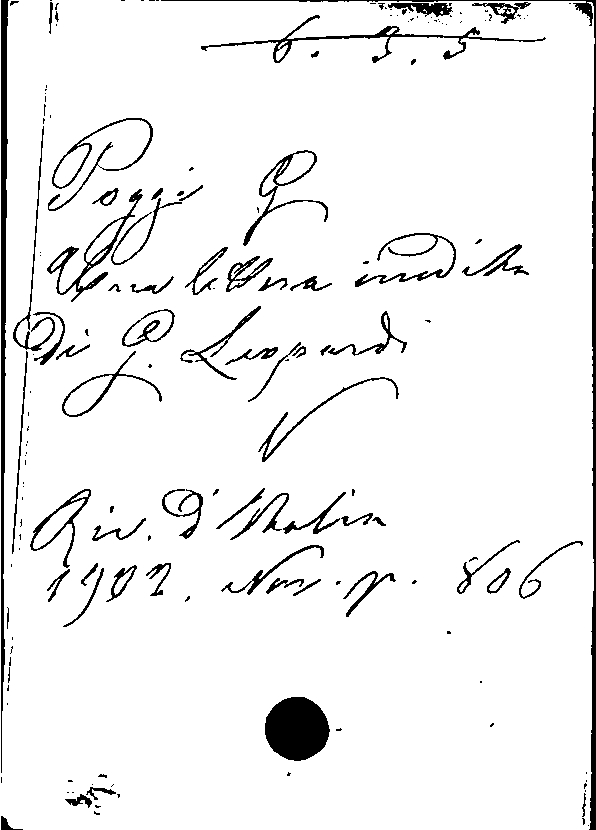 6. 3. 5
Poggi G
Una lettera inedita
di G. Leopardi
V
Riv. d'Italia
1902. Nov. p. 806